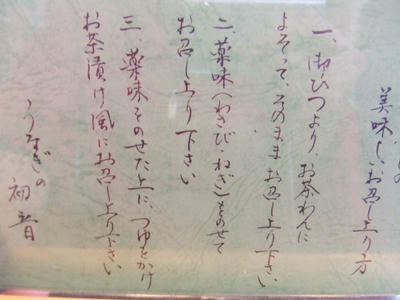 美味しいお召し上り方
一、御ひつより お茶わんに
よそって、そのまま お召し上り下さい
二、薬味(わさび・ねぎ)をのせて
お召し上り下さい
三、薬味をのせた上に、つゆをかけ
お茶漬け風にお召し上り下さい
うなぎの 初音